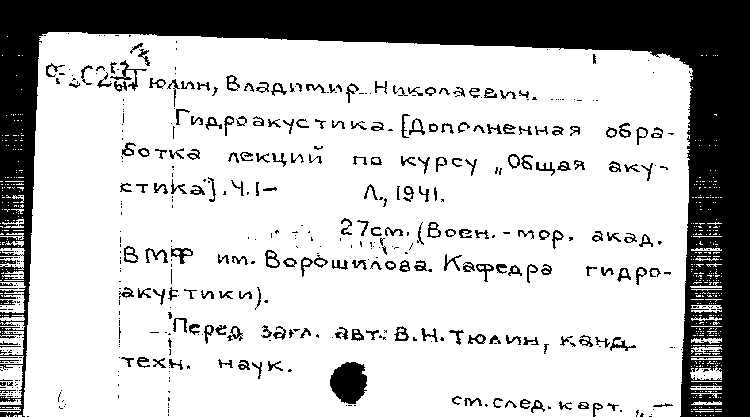 Тюлин, Владимир Николаевич.
Гидроакустика. [Дополненная обра-
ботка лекций по курсу „Общая аку-
стика"]. Ч.1- Л., 1941.
27см. (Воен.-мор. акад.
ВМФ им. Ворошилова. Кафедра гидро-
акустики).
Перед загл. авт.: В.Н. Тюлин, канд.
техн. наук.
см. след. карт. „-